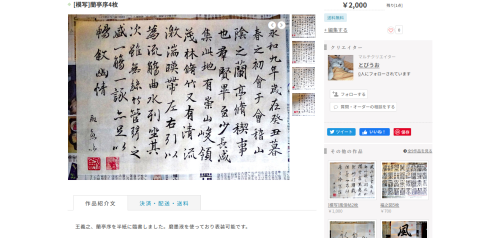 [模写]蘭亭序4枚
永和九年歳在癸丑暮
春之初會于會稽山
陰之蘭亭脩稧事
也羣賢畢至少長咸
集此地有崇山峻領
茂林脩竹又有清流
激湍暎帶左右引以
為流觴曲水列坐其
次雖無絲竹管弦之
盛一觴一詠亦足以
暢叙幽情
作品紹介文
決済・配送・送料
王羲之、蘭亭序を半紙に臨書しました。墨墨液を使っており表装可能です。
¥2,000
残り1点
送料無料
編集する
0
クリエイター
マルチクリエイター
とびうお
1人にフォローされています
フォローする
質問・オーダーの相談をする
ツイート
いいね!
保存
その他の作品